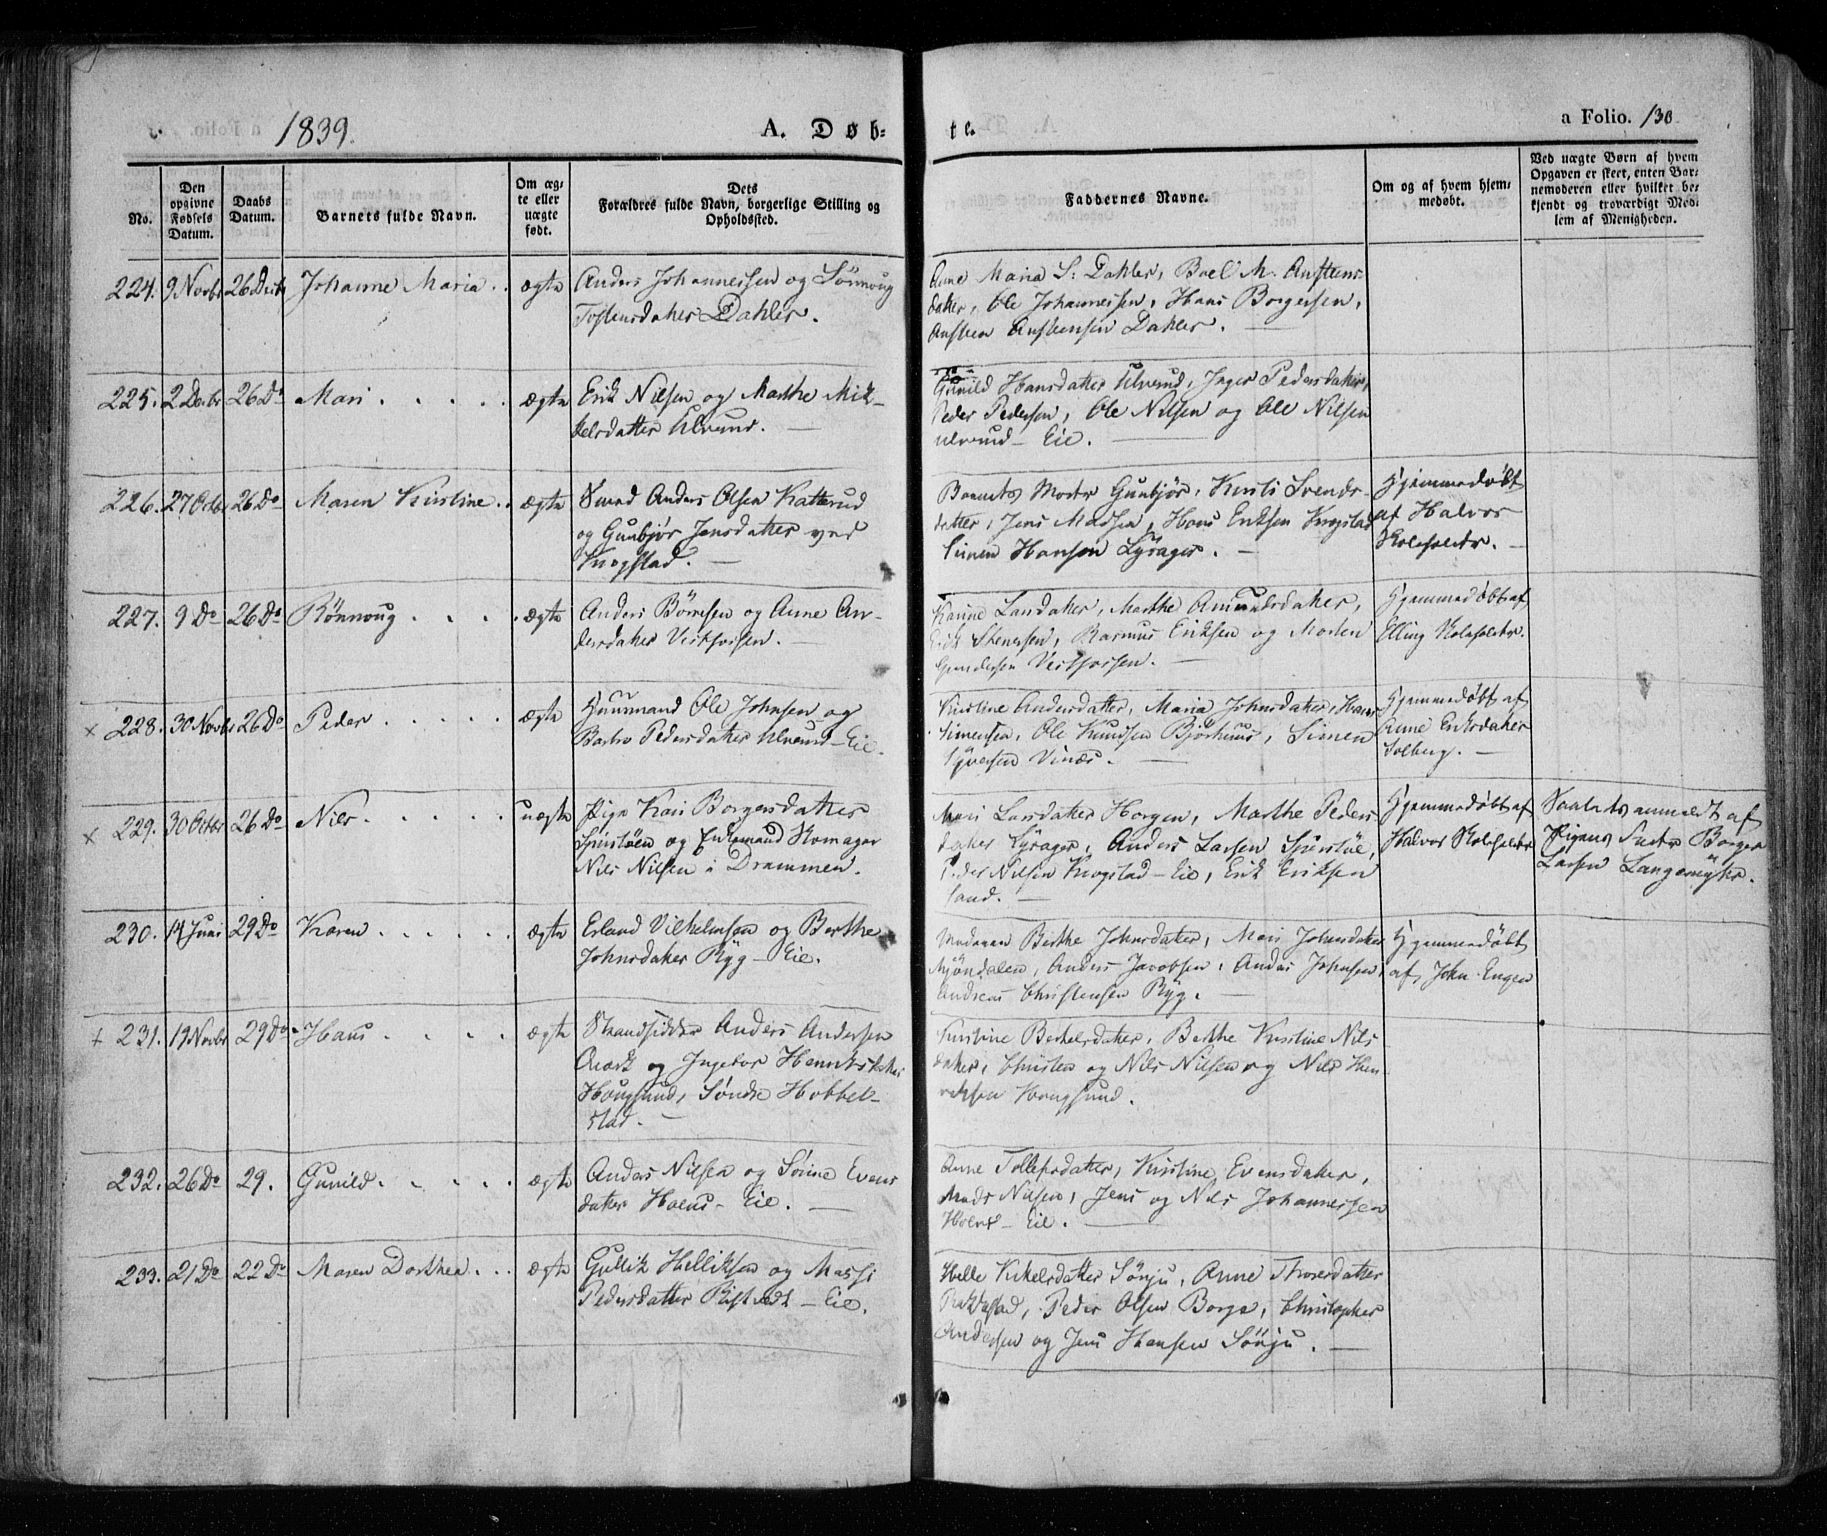 1839.
A. Døb-
te.
a Folio. 130
No.
Den opgivne Fødsels Datum.
Daabs Datum.
Barnets fulde Navn.
Om ægte eller uægte født.
Dets Forældres fulde Navn, borgerlige Stilling og Opholdssted.
Faddernes Navne.
Om og af hvem hjemmedøbt.
Ved uægte Børn af hvem Opgaven er skeet, enten Barnemoderen eller hvilket bekjendt og troværdigt Medlem af Menigheden.
224. 9 Novbr 26 Decbr Johanne Maria . . ægte
Anders Johannessen og Sönnoug
Tostensdatter Dahler.
Anne Maria S: Dahler, Boel M. Anstens-
datter, Ole Johannessen, Hans Borgersen,
Ansten Anstensen Dahler. —
225. 2 Decbr 26 Do Mari . . . . . ægte
Erik Nilsen og Marthe Mik-
kelsdatter Ulverud. —
Gunild Hansdatter Ulverud, Inger Pedersdatter,
Peder Pedersen, Ole Nilsen og Ole Nilsen
Ulverud-Eie. —
226. 27 Octbr 26 Do Maren Kirstine . . ægte
Smed Anders Olsen Katterud
og Gunbjör Jensdatter ved
Krogstad. —
Barnets Moster Gunbjör, Kirsti Svends-
datter, Jens Madsen, Hans Eriksen Krogstad
Simen Hansen Lÿrager. —
Hjemmedöbt
af Halvor
Kolsfeldtr. —
227. 9 Do 26 Do Rönnoug . . . . ægte
Anders Börresen og Anne An-
dersdatter Vestfossen. —
Karine Larsdatter, Marthe Amundsdatter,
Erik Stenersen, Rasmus Eriksen og Morten
Gundersen Vestfossen. —
Hjemmedöbt af
Elling Kolsfeldtr.
x 228. 30 Novbr 26 Do Peder . . . . . ægte
Huusmand Ole Johnsen og
Berthe Pedersdatter Ulverud-Eie.
Kirstine Andersdatter, Maria Johnsdatter, Hans
Simensen, Ole Knudsen Björkuus, Simen
Syversen Vinæs. —
Hjemmedöbt af
Anne Eriksdatter
Solberg. —
x 229. 30 Octbr 26 Do Nils . . . . . uægte
Pige Kari Borgersdatter
Spirstöen og Enkemand Skomager
Nils Nilsen i Drammen.
Mari Larsdatter Horgen, Marthe Peders-
datter Lÿrager, Anders Larsen Spirstöe,
Peder Nilsen Krogstad-Eie, Erik Eriksen
Sand. —
Hjemmedöbt af
Halvor Kolsfeldtr
Saaledes anmeldt af
Pigens Fader Borger
Larsen Langemÿhr.
230. 14 Juni 29 Do Karen . . . . . . ægte
Erland Vilhelmsen og Berthe
Johnsdatter Rÿg-Eie.
Madamen Berthe Johnsdatter, Mari Johnsdatter
Mjöndalen, Anders Jacobsen, Anders Johnsen,
Andreas Christensen Rÿg. —
Hjemmedöbt
af John Engen
+ 231. 19 Novbr 29 Do Hans . . . . ægte
Strandsidder Anders Andersen
Qværk og Ingebor Henriksdatter
Hougsund, Söndre Hobbel-
stad. —
Kirstine Berthelsdatter, Berthe Kirstine Nils-
datter, Christen og Nils Nilsen og Nils Hen-
riksen Hougsund.
232. 26 Do 29. Gunild . . . . . ægte
Anders Nilsen og Sönne Evens-
datter Hoens-Eie. —
Anne Tollefsdatter, Kirstine Evensdatter,
Mads Nilsen, Jens og Nils Johannessen
Hoens-Eie. —
233. 21 Do 22 Do Maren Dorthea . . . ægte
Gullik Helliksen og Massi
Pedersdatter Ristvedt-Eie.
Helle Kikelsdatter Sönju, Anne Thoresdatter
Rakkestad, Peder Olsen Borge, Christopher
Andersen og Jens Hansen Sönju. —